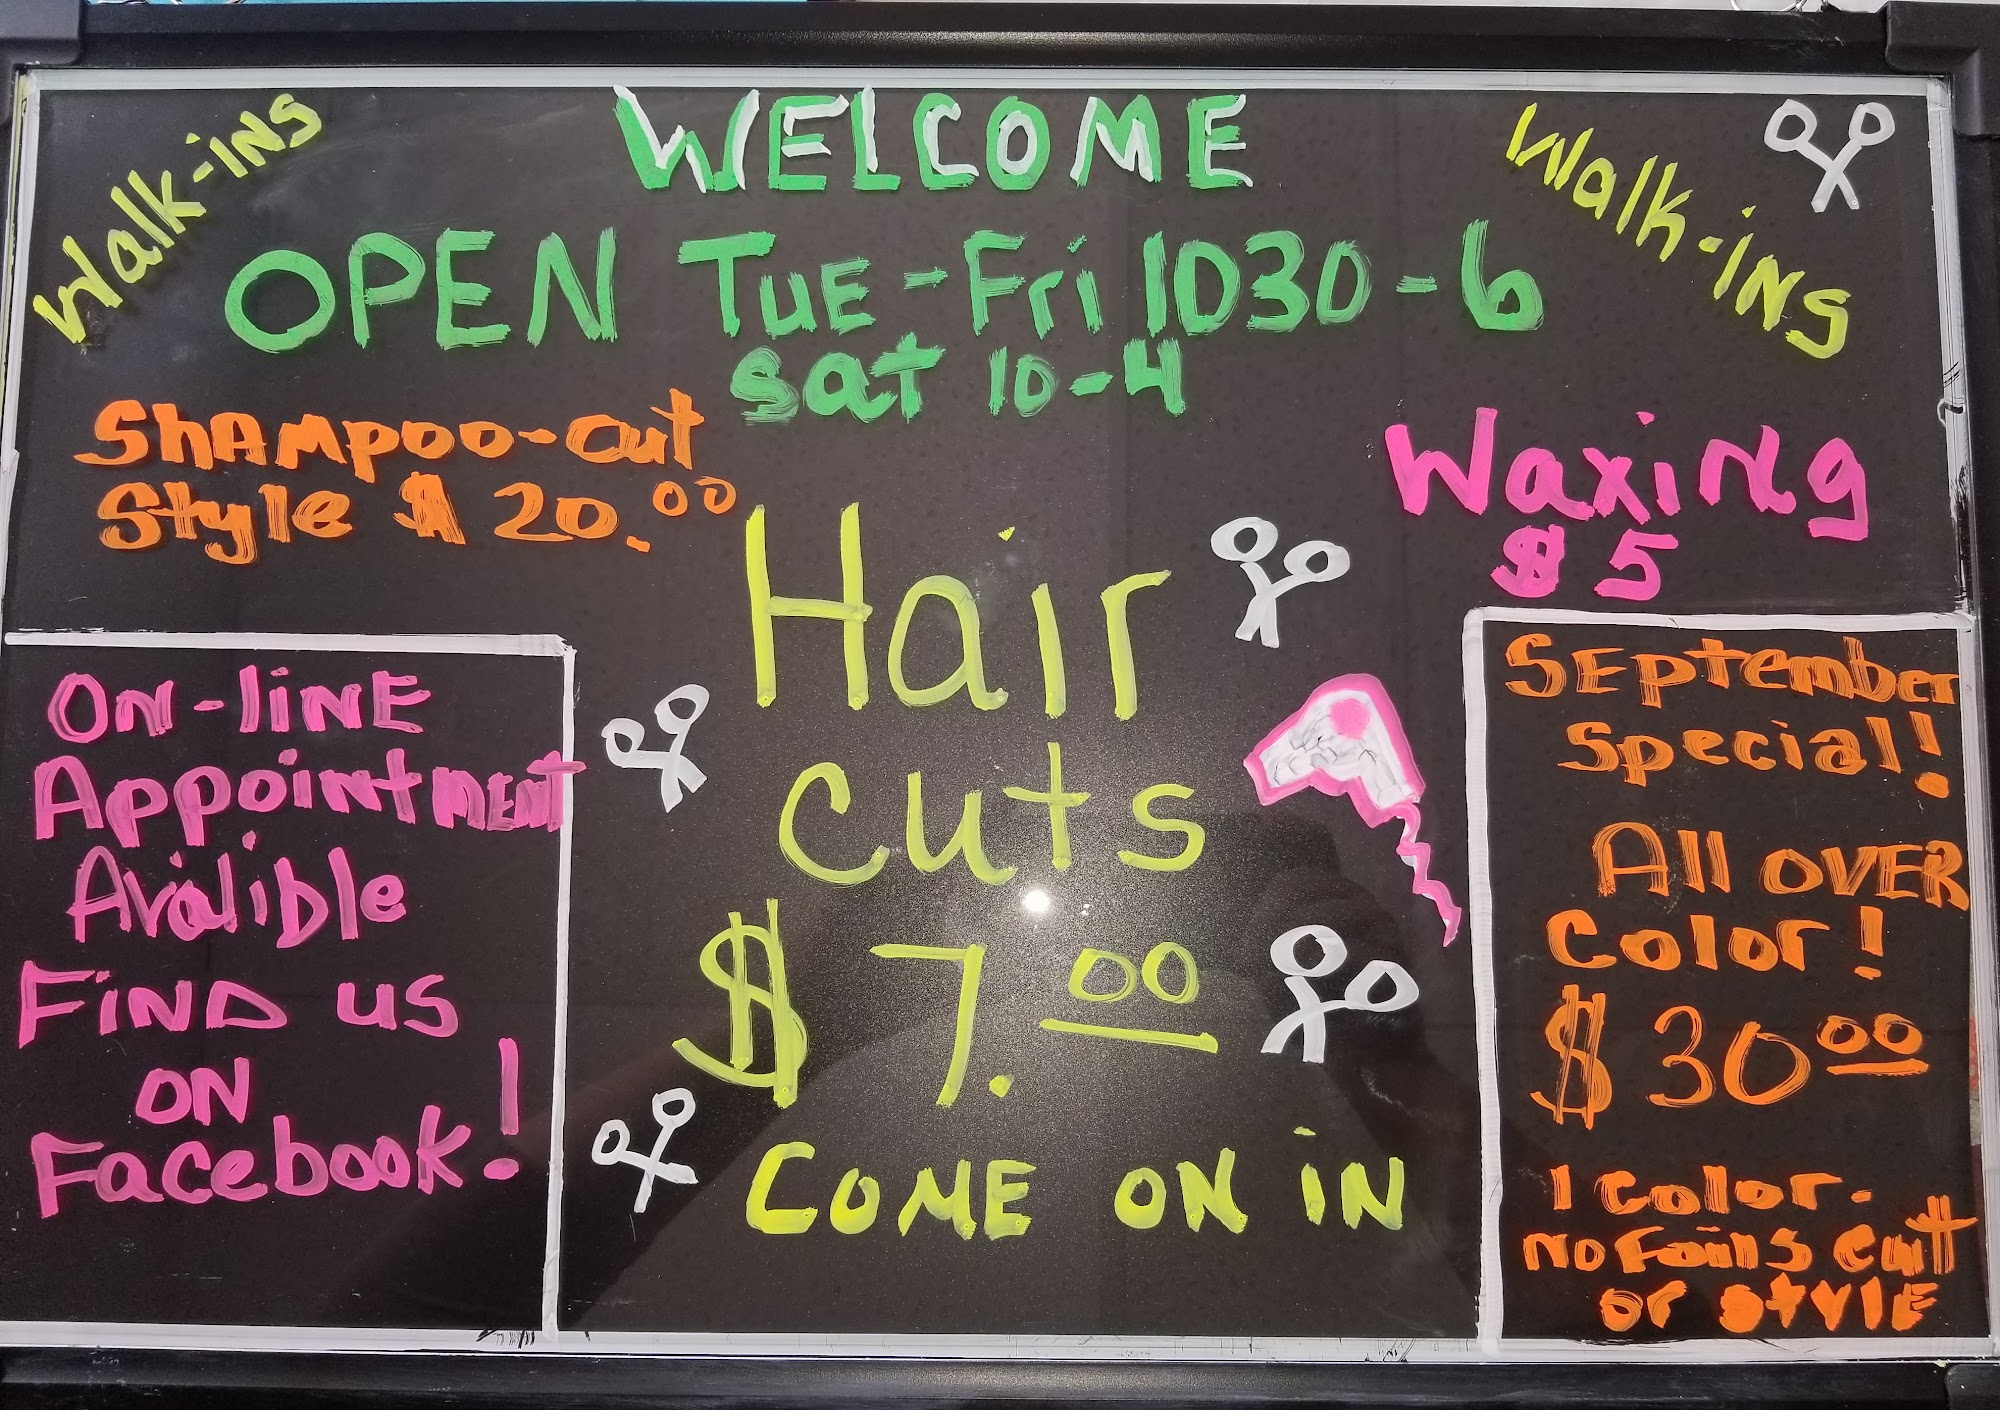 Walk-ins
WELCOME
Walk-iNS
OPEN Tue-Fri 1030-6
Sat 10-4
Shampoo-cut
Style $20.00
Waxing
$5
Hair
cuts
$7.00
COME ON iN
ON-liNE
Appointment
Avalible
FiND us
ON
Facebook!
September
Special!
All OVER
Color!
$30.00
1 color.
no foils cut
or style